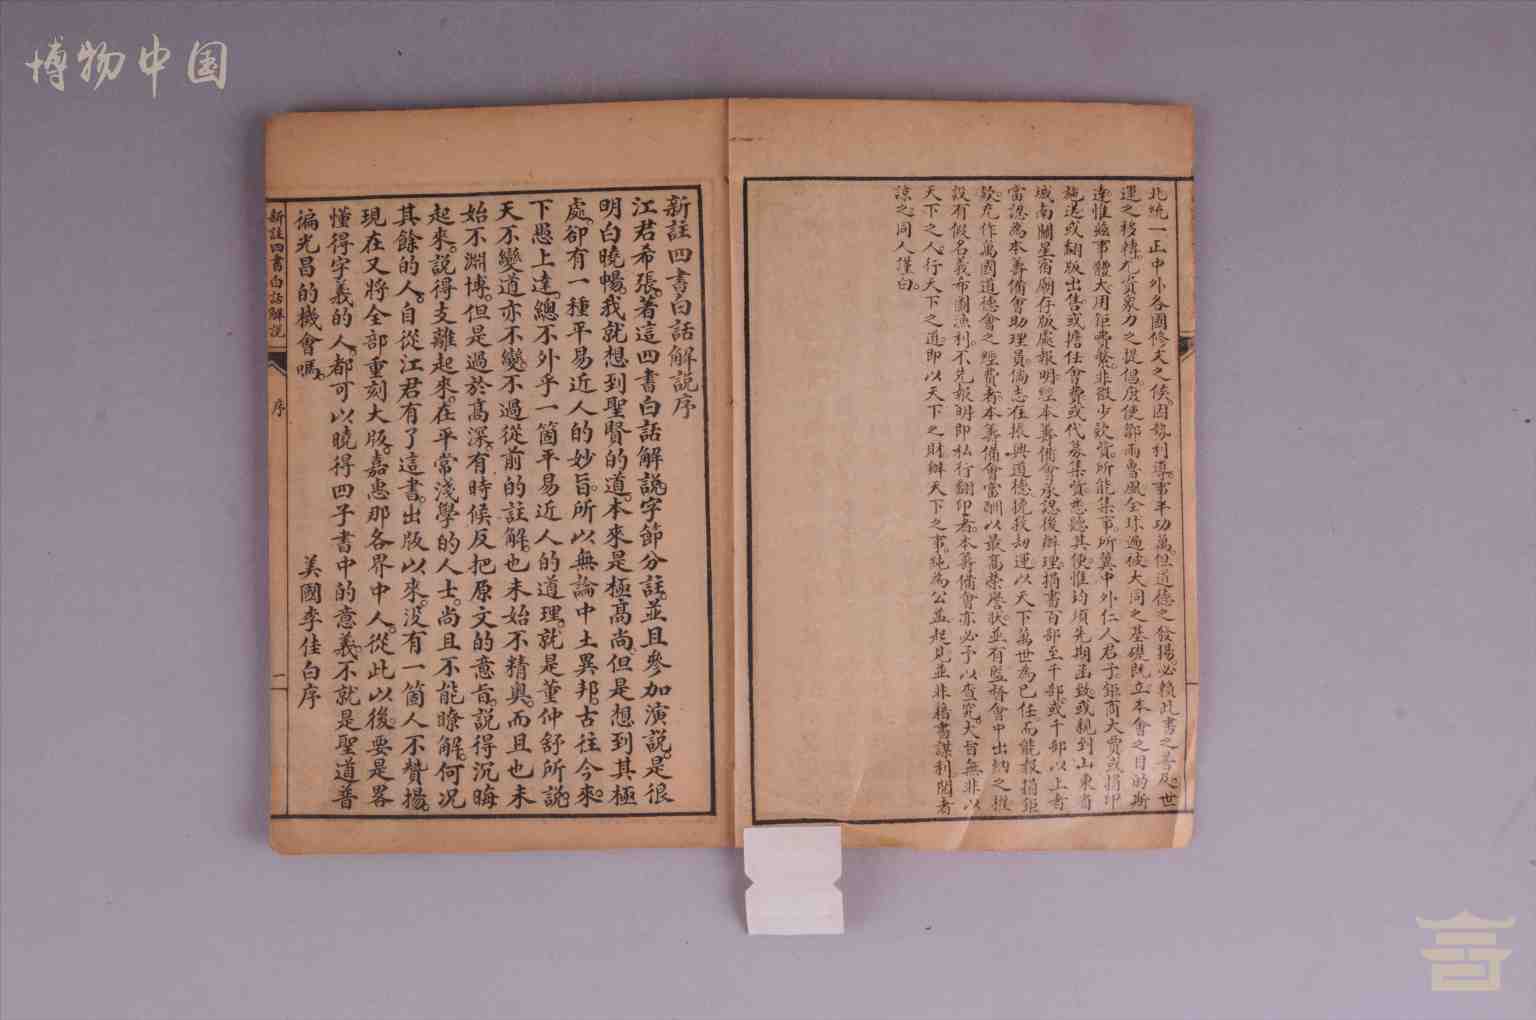 博物中国
北統一正中外各國修文之候。因勢利導。事半功萬。但道德之發揚。必賴此書之普及。世
運之移轉。尤資衆力之提倡。庶使鄒雨魯風。全球遍被。大同之基礎既立。本會之目的斯
達。惟茲事體大。用鉅費繁。非微少欵資。所能集事。所冀中外仁人君子。鉅商大賈。或捐印
施送。或翻版出售。或擔任會費。或代募集資。悉聽其便。惟均須先期函致。或親到山東省
城南關星宿廟存版處報明。經本籌備會承認後辦理。捐書百部至千部。或千部以上者。
當認為本籌備會助理員。倘志在振興道德。挽救劫運。以天下萬世為己任。而能報捐鉅
欵。充作萬國道德會之經費者。本籌備會當酬以最高榮譽狀。並有監督會中出納之權。
設有假名義。希圖漁利。不先報明。即私行翻印者。本籌備會亦必予以查究。大旨無非以
天下之人。行天下之道。即以天下之財。辦天下之事。純為公益起見。並非藉書謀利。閱者
諒之。同人謹白。
新註四書白話解說序
江君希張。著這四書白話解說。字節分註。並且參加演說。是很
明白曉暢。我就想到聖賢的道。本來是極高尚。但是想到其極
處。卻有一種平易近人的妙旨。所以無論中土異邦。古往今來。
下愚上達。總不外乎一箇平易近人的道理。就是董仲舒所說。
天不變道亦不變。不過從前的註解。也未始不精奥。而且也未
始不淵博。但是過於高深。有時候反把原文的意旨。說得沉晦
起來。說得支離起來。在平常淺學的人士。尚且不能瞭解。何况
其餘的人。自從江君有了這書。出版以來。没有一箇人不贊揚。
現在又將全部重刻大版。嘉惠那各界中人。從此以後。要是畧
懂得字義的人。都可以曉得四子書中的意義。不就是聖道普
徧光昌的機會嗎。
美國李佳白序
新註四書白話解說
序
一